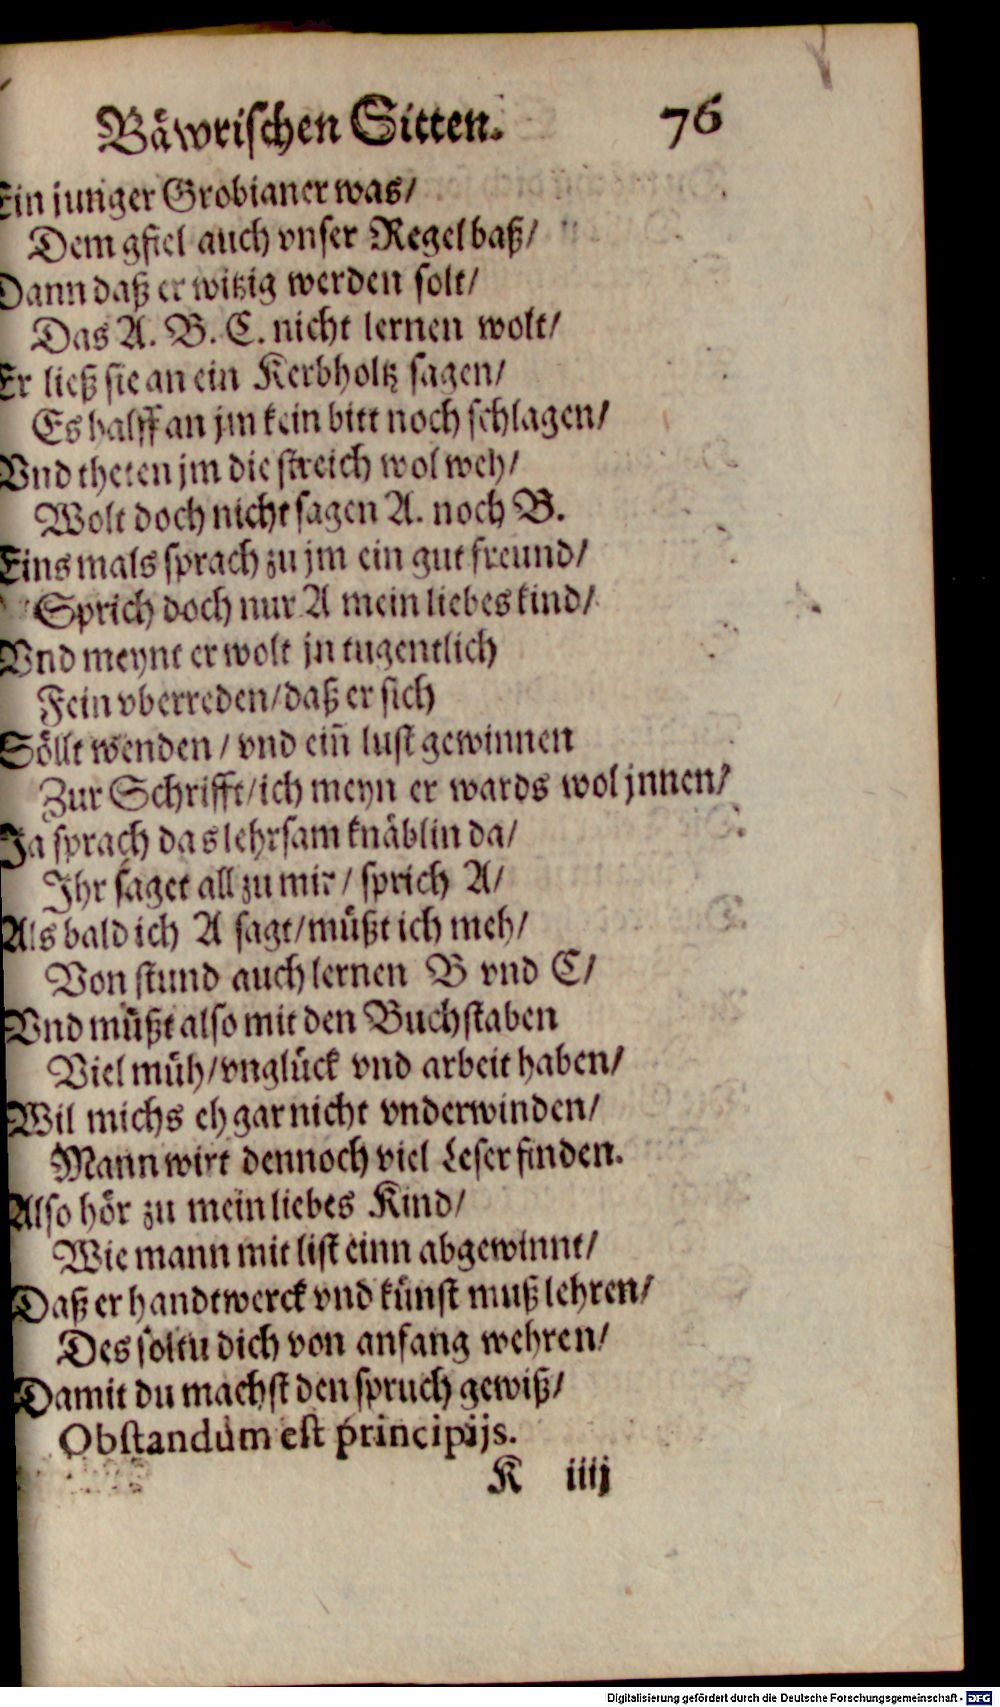 Bäwrischen Sitten. 76
Ein junger Grobianer was/
Dem gfiel auch vnser Regel baß/
Dann daß er witzig werden solt/
Das A. B. C. nicht lernen wolt/
Er ließ sie an ein Kerbholtz sagen/
Es halff an jm kein bitt noch schlagen/
Vnd theten jm die streich wol weh/
Wolt doch nicht sagen A. noch B.
Eins mals sprach zu jm ein gut freund/
Sprich doch nur A mein liebes kind/
Vnd meynt er wolt jn tugentlich
Fein vberreden/ daß er sich
Söllt wenden/ vnd ein̄ lust gewinnen
Zur Schrifft/ ich meyn er wards wol jnnen/
Ja sprach das lehrsam knäblin da/
Ihr saget all zu mir/ sprich A/
Als bald ich A sagt/ müßt ich meh/
Von stund auch lernen B vnd C/
Vnd müßt also mit den Buchstaben
Viel müh/ vnglück vnd arbeit haben/
Wil michs eh gar nicht vnderwinden/
Mann wirt dennoch viel Leser finden.
Also hör zu mein liebes Kind/
Wie mann mit list einn abgewinnt/
Daß er handtwerck vnd künst muß lehren/
Des soltu dich von anfang wehren/
Damit du machst den spruch gewiß/
Obstandum est principijs.
K iiij
Digitalisierung gefördert durch die Deutsche Forschungsgemeinschaft - DFG